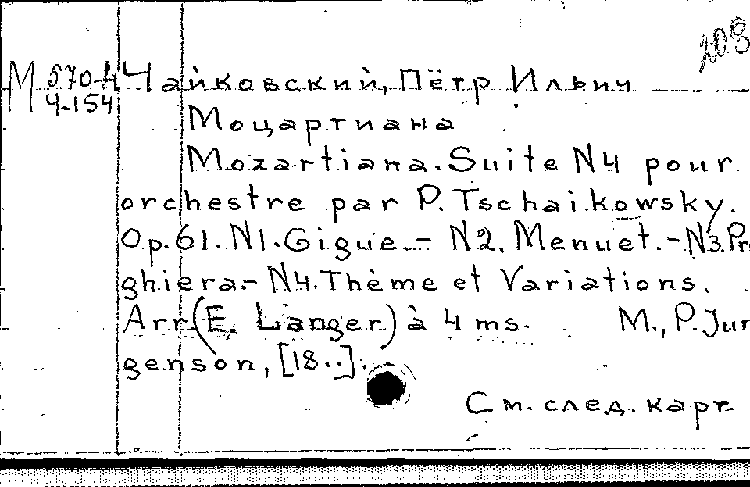 208
М 570-4 Чайковский, Пётр Ильич
Ч-154
Моцартиана
Mozartiana. Suite N4 pour
orchestre par P. Tschaikowsky.
Op. 61. N1. Gigue. - N2. Menuet. - N3. Pre
ghiera. - N4. Thème et Variations.
Arr. (E. Langer) à 4 ms. M., P. Jur
genson, [18..].
См. след. карт.